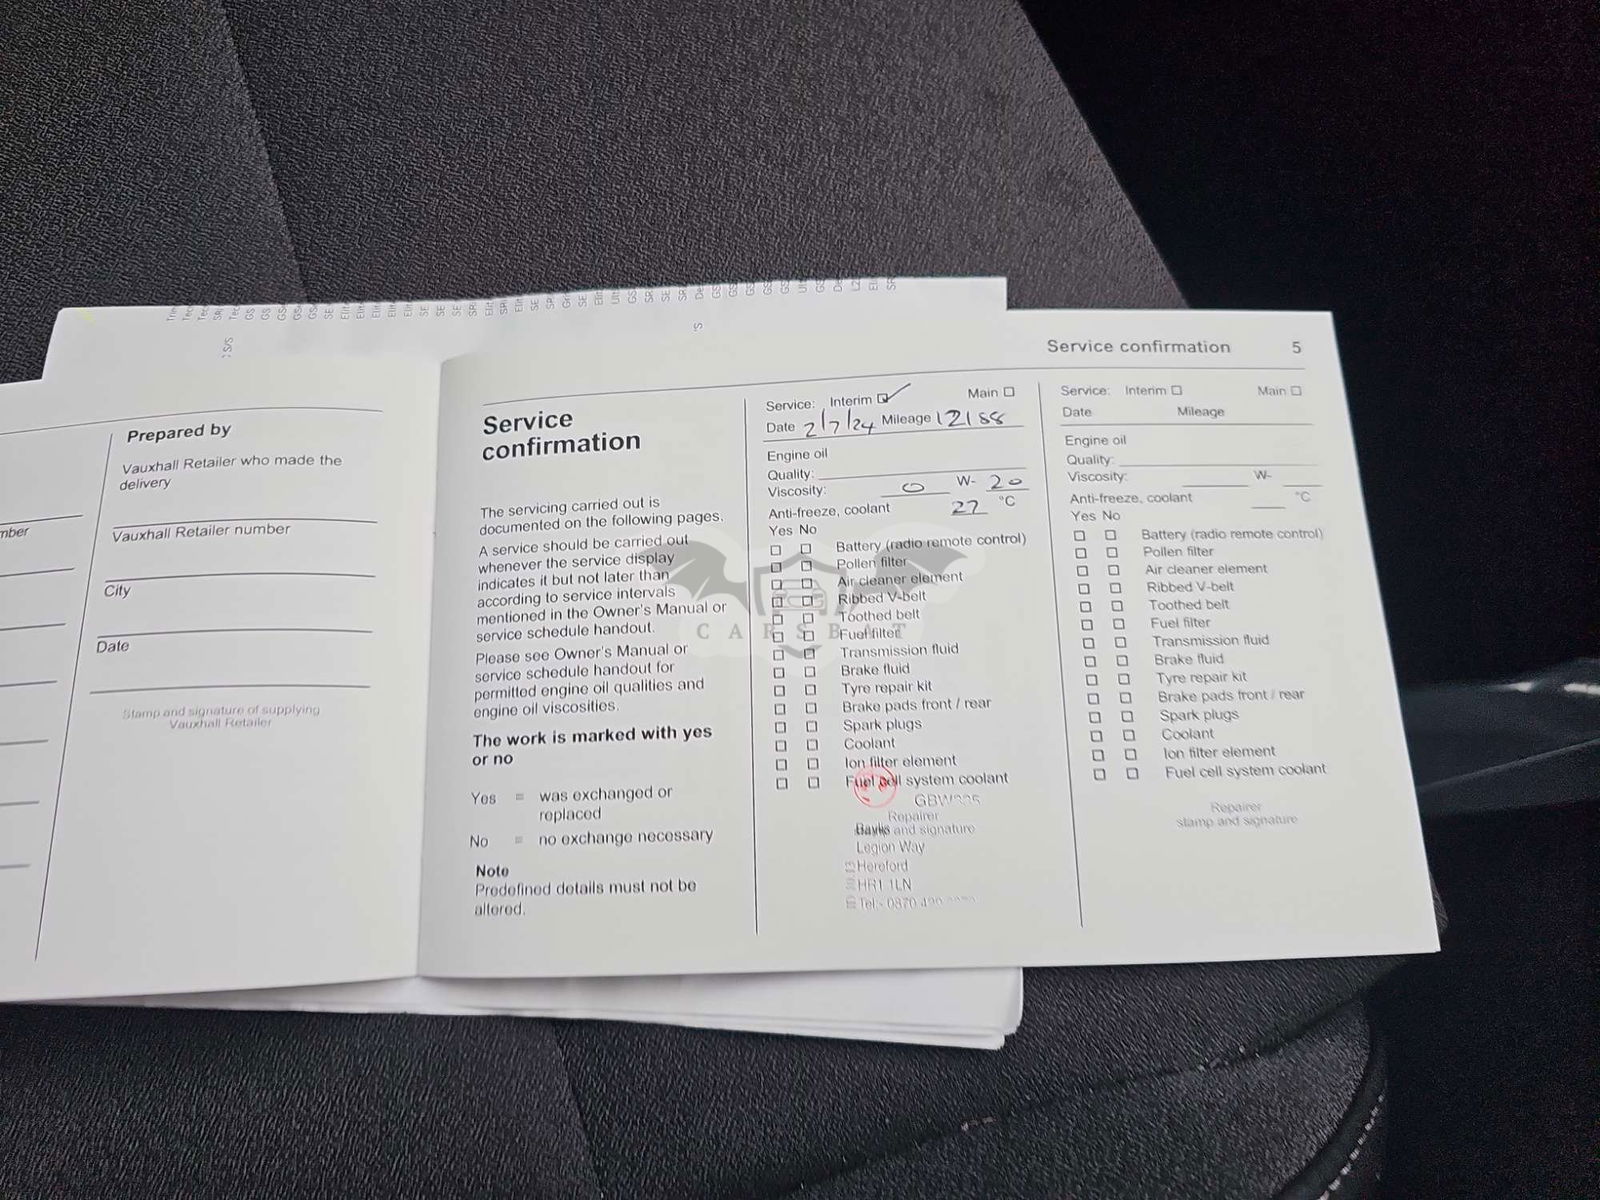 Service confirmation 5
mber
Prepared by
Vauxhall Retailer who made the
delivery
Vauxhall Retailer number
City
Date
Stamp and signature of supplying
Vauxhall Retailer
Service
confirmation
The servicing carried out is
documented on the following pages.
A service should be carried out
whenever the service display
indicates it but not later than
according to service intervals
mentioned in the Owner's Manual or
service schedule handout.
Please see Owner's Manual or
service schedule handout for
permitted engine oil qualities and
engine oil viscosities.
The work is marked with yes
or no
Yes = was exchanged or
replaced
No = no exchange necessary
Note
Predefined details must not be
altered.
Service: Interim Main
Date 2/7/24 Mileage 12188
Engine oil
Quality:
Viscosity: 0 W- 20
Anti-freeze, coolant 27 °C
Yes No
Battery (radio remote control)
Pollen filter
Air cleaner element
Ribbed V-belt
Toothed belt
Fuel filter
Transmission fluid
Brake fluid
Tyre repair kit
Brake pads front / rear
Spark plugs
Coolant
Ion filter element
Fuel cell system coolant
Repairer
stamp and signature
Legion Way
Hereford
HR1 1LN
Tel:- 0870
Service: Interim Main
Date Mileage
Engine oil
Quality:
Viscosity: W-
Anti-freeze, coolant °C
Yes No
Battery (radio remote control)
Pollen filter
Air cleaner element
Ribbed V-belt
Toothed belt
Fuel filter
Transmission fluid
Brake fluid
Tyre repair kit
Brake pads front / rear
Spark plugs
Coolant
Ion filter element
Fuel cell system coolant
Repairer
stamp and signature
CARSBAT